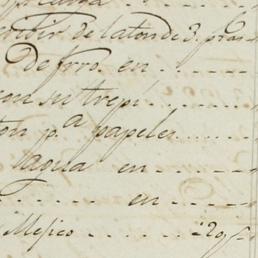 cribir de laton de 3. pras
De frro. en
con su trepi
ton pa. papeles
agua en
en
Mexico 20